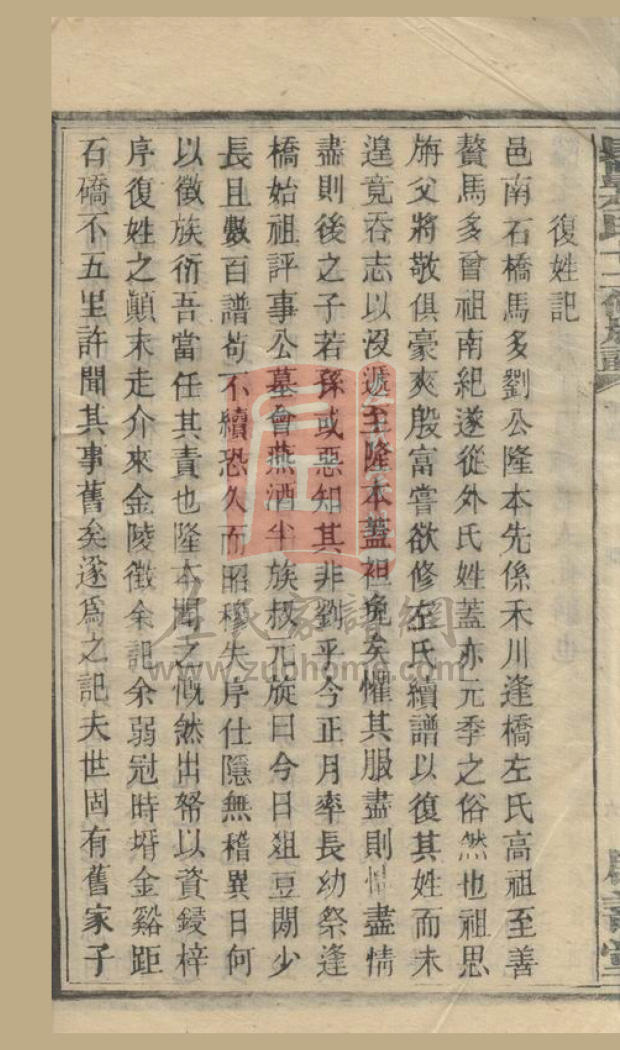 復姓記
邑南石橋馬多劉公隆本先係禾川逢橋左氏高祖至善
贅馬多曾祖南紀遂從外氏姓蓋亦元季之俗然也祖思
旃父將敬俱豪爽殷富嘗欲修左氏續譜以復其姓而未
遑竟吞志以沒遞至隆本蓋袒免矣懼其服盡則情盡情
盡則後之子若孫或惡知其非劉乎今正月率長幼祭逢
橋始祖評事公墓會燕酒半族叔元旋曰今日俎豆間少
長且數百譜苟不續恐久而昭穆失序仕隱無稽異日何
以徵族衍吾當任其責也隆本聞之慨然出帑以資鋟梓
序復姓之顛末走介來金陵徵余記余弱冠時壻金谿距
石礄不五里許聞其事舊矣遂爲之記夫世固有舊家子
左氏家譜網
www.zuohome.com